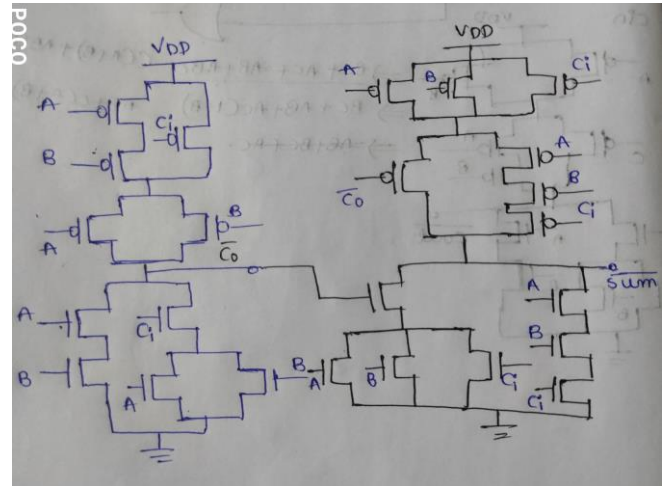 POCO
VDD
A
Ci
B
A
B
C̅o̅
A
Ci
B
A
B
VDD
A
B
Ci
C̅o̅
A
B
Ci
S̅u̅m̅
A
B
Ci
A
B
Ci